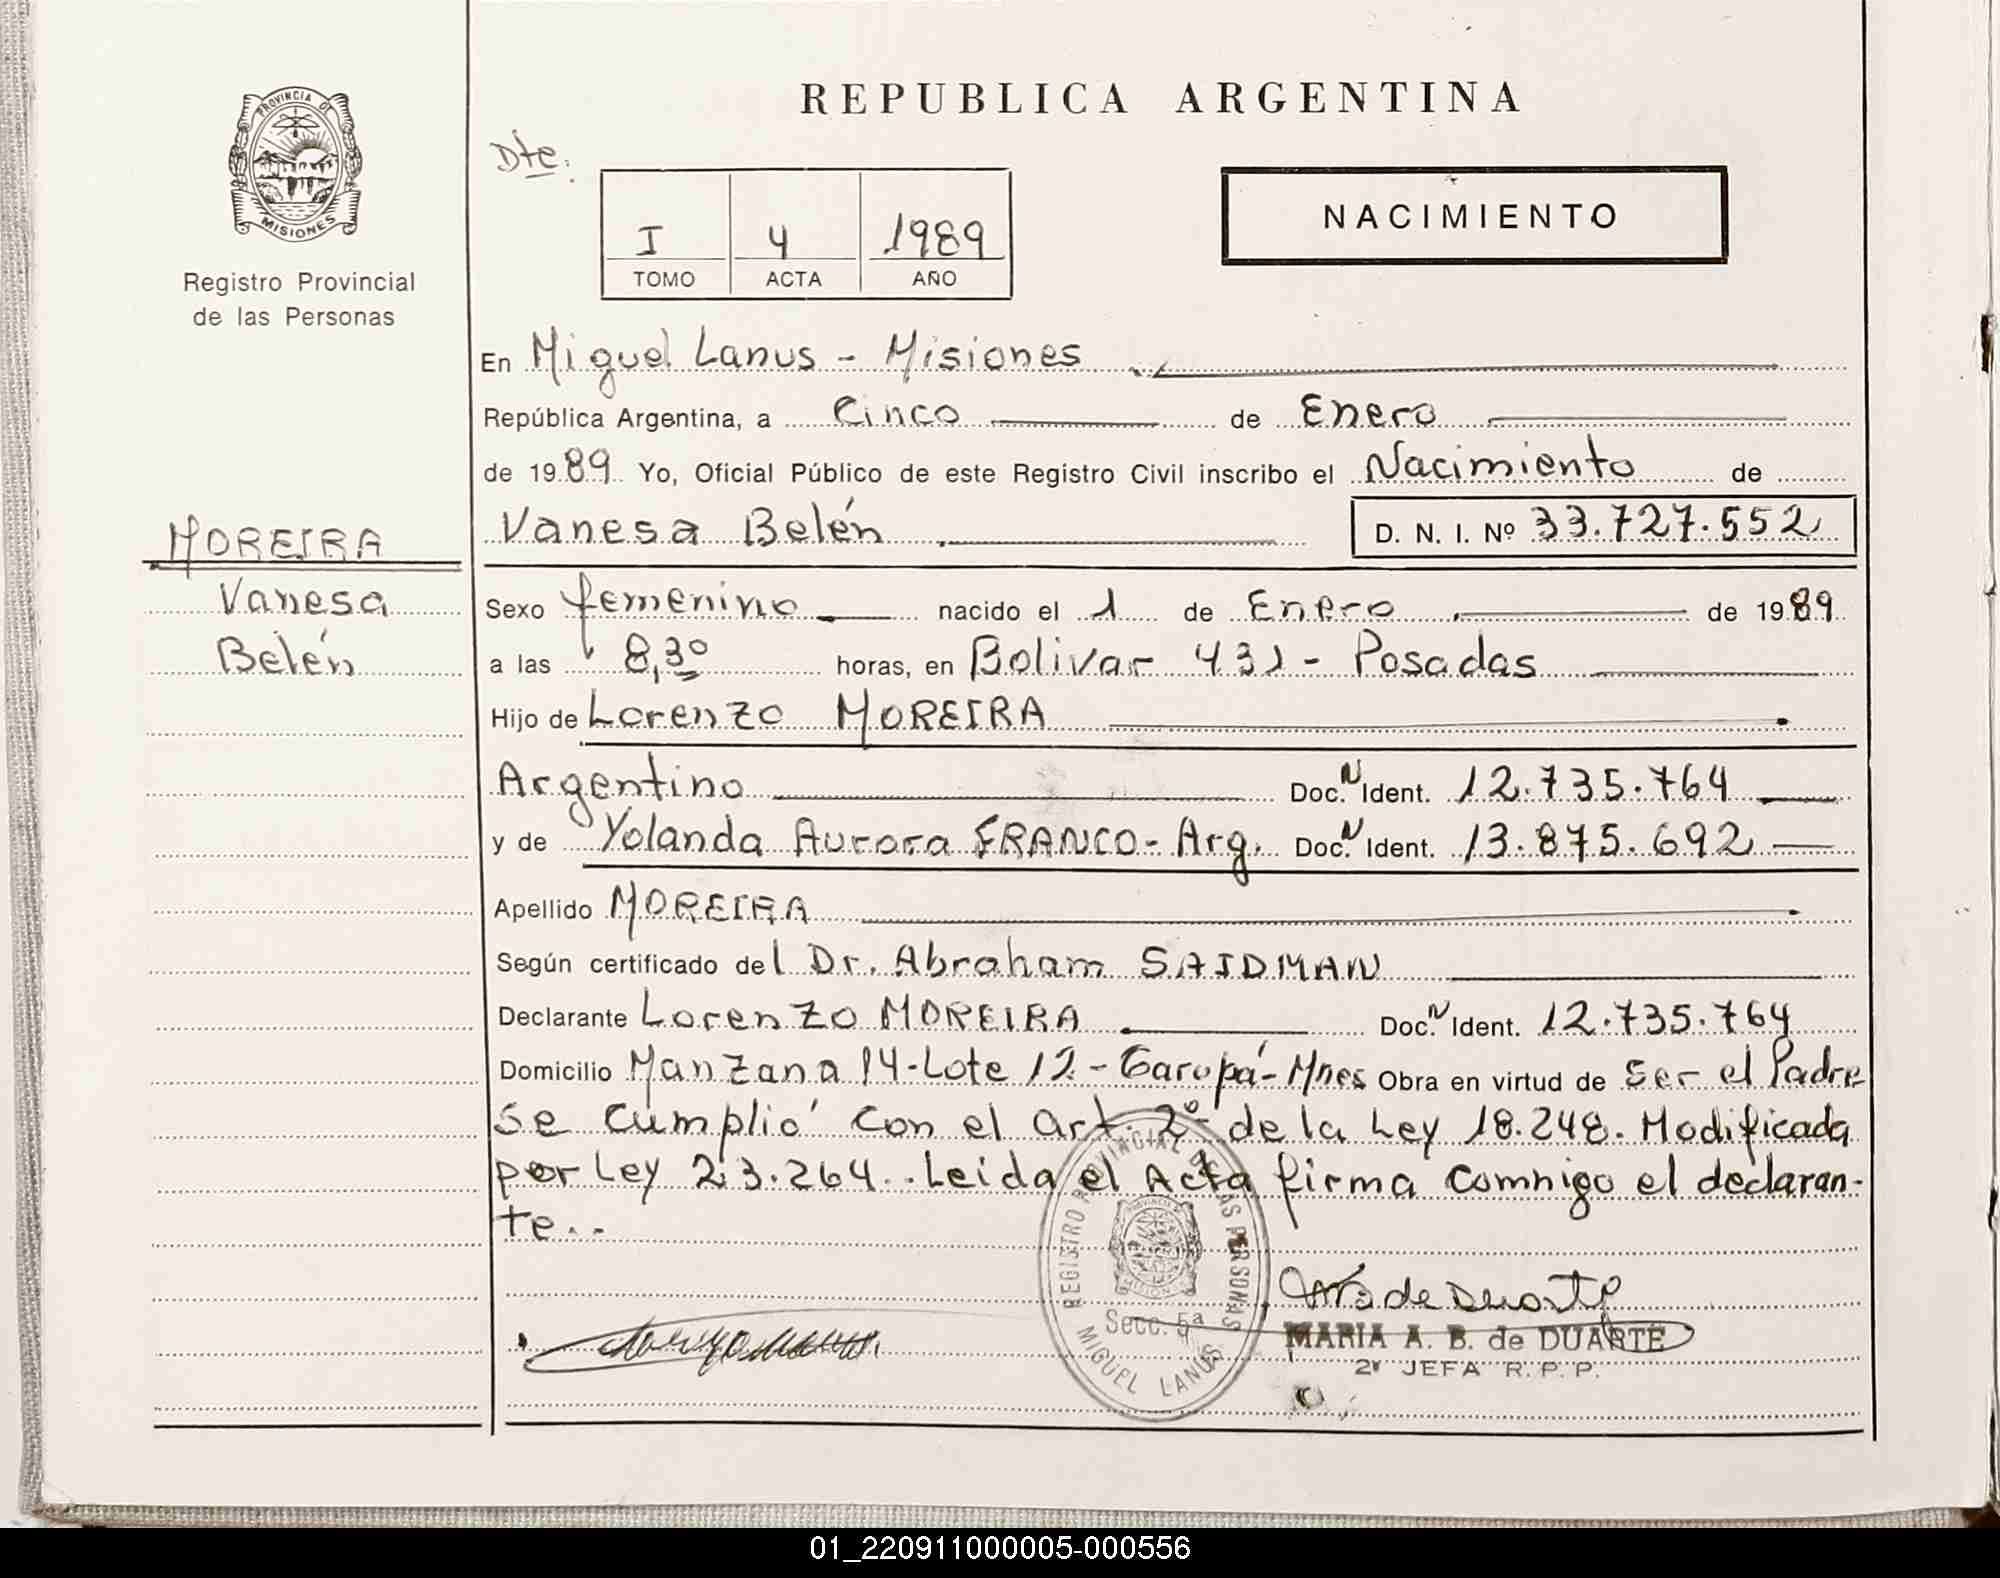 REPUBLICA ARGENTINA
PROVINCIA DE
MISIONES
Registro Provincial
de las Personas
Dte.
I 4 1989
TOMO ACTA AÑO
NACIMIENTO
En Miguel Lanus - Misiones
República Argentina, a Cinco de Enero
de 1989 Yo, Oficial Público de este Registro Civil inscribo el Nacimiento de
Vanesa Belén D. N. I. Nº 33.727.552
MOREIRA
Vanesa
Belén
Sexo femenino nacido el 1 de Enero de 1989
a las 8,30 horas, en Bolivar 431 - Posadas
Hijo de Lorenzo MOREIRA
Argentino Doc. N Ident. 12.735.764
y de Yolanda Aurora FRANCO - Arg. Doc. N Ident. 13.875.692
Apellido MOREIRA
Según certificado del Dr. Abraham SAIDMAN
Declarante Lorenzo MOREIRA Doc. N Ident. 12.735.764
Domicilio Manzana 14 - Lote 12 - Garupá - Mnes Obra en virtud de Ser el Padre
se cumplió con el art. 2º de la Ley 18.248. Modificada
por Ley 23.264.. Leida el Acta firma comnigo el declaran-
te..
REGISTRO PROVINCIAL DE LAS PERSONAS
Secc. 5ª
MIGUEL LANUS
MARIA A. B. de DUARTE
2ª JEFA R. P. P.
01_220911000005-000556